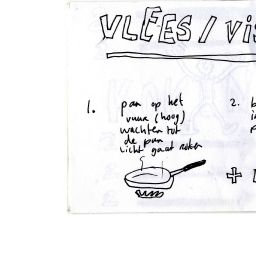 VLEES / Vis
1. pan op het
vuur (hoog)
wachten tot
de pan
licht gaat roken
2. b
i
p
+